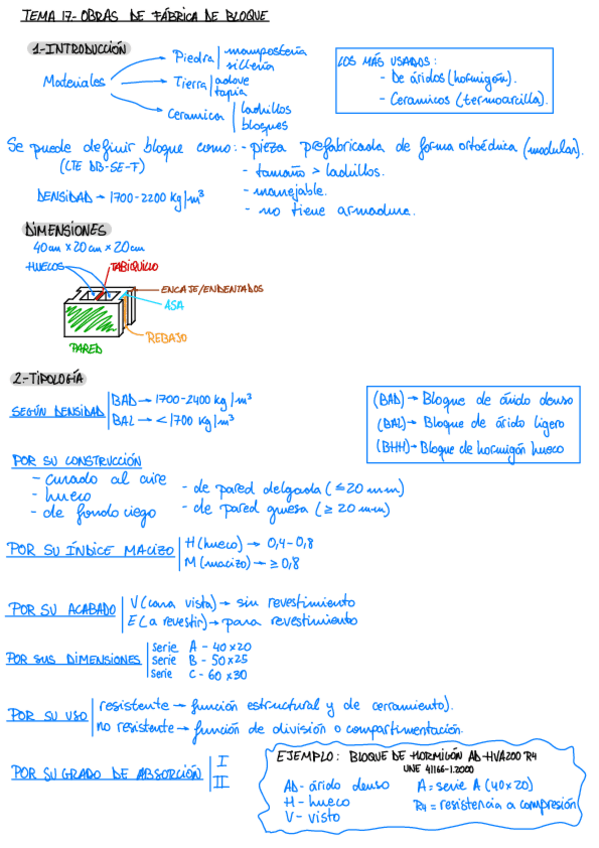 TEMA 17- OBRAS DE FÁBRICA DE BLOQUE
1.-INTRODUCCIÓN
Materiales
Piedra | mampostería
sillería
Tierra | adove
tapia
Ceramica | ladrillos
bloques
LOS MÁS USADOS:
- De áridos (hormigón).
- Ceramicos (termoarcilla).
Se puede definir bloque como: - pieza prefabricada de forma ortoédrica (modular).
(CTE DB-SE-F)
- tamaño > ladrillos.
DENSIDAD → 1700-2200 kg/m³
- manejable.
- no tiene armadura.
DIMENSIONES
40cm x 20cm x 20cm
HUECOS
TABIQUILLO
ENCAJE/ENDENTADOS
ASA
REBAJO
PARED
2.-TIPOLOGÍA
SEGÚN DENSIDAD | BAD → 1700-2400 kg/m³
BAL → < 1700 kg/m³
(BAD) → Bloque de árido denso
(BAL) → Bloque de árido ligero
(BHH) → Bloque de hormigón hueco
POR SU CONSTRUCCIÓN
- curado al aire
- hueco
- de fondo ciego
- de pared delgada (≤ 20 mm)
- de pared gruesa (≥ 20 mm)
POR SU ÍNDICE MACIZO | H (hueco) → 0,4-0,8
M (macizo) → ≥ 0,8
POR SU ACABADO | V (cara vista) → sin revestimiento
E (a revestir) → para revestimiento
POR SUS DIMENSIONES | serie A - 40x20
serie B - 50x25
serie C - 60x30
POR SU USO | resistente → función estructural y de cerramiento).
no resistente → función de división o compartimentación.
POR SU GRADO DE ABSORCIÓN | I
II
EJEMPLO: BLOQUE DE HORMIGÓN AD-HVA200 R4
UNE 41166-1:2000
AD- árido denso
H - hueco
V - visto
A = serie A (40x20)
R4 = resistencia a compresión